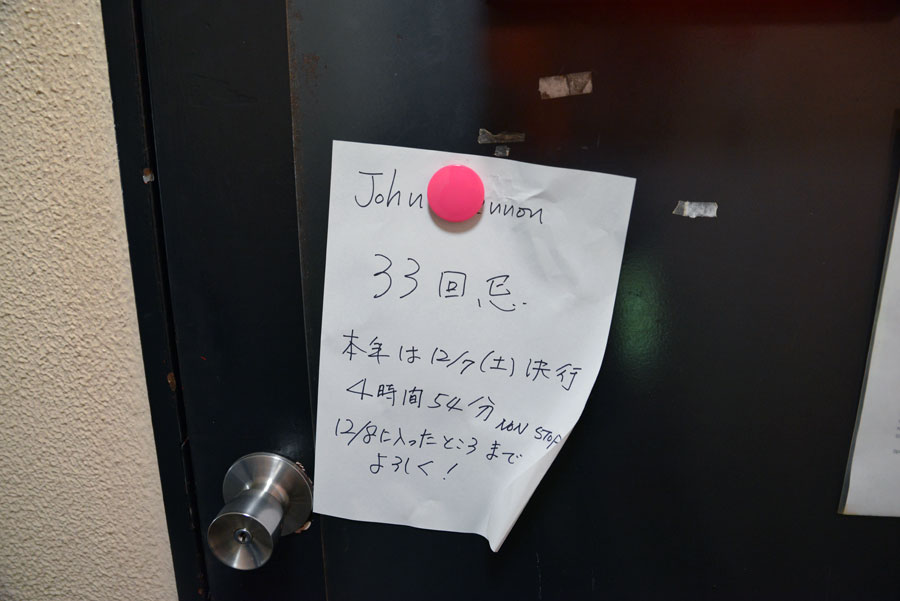 John ennon
33回忌
本年は12/7(土)決行
4時間54分 NON STOP
12/8に入ったところまで
よろしく!